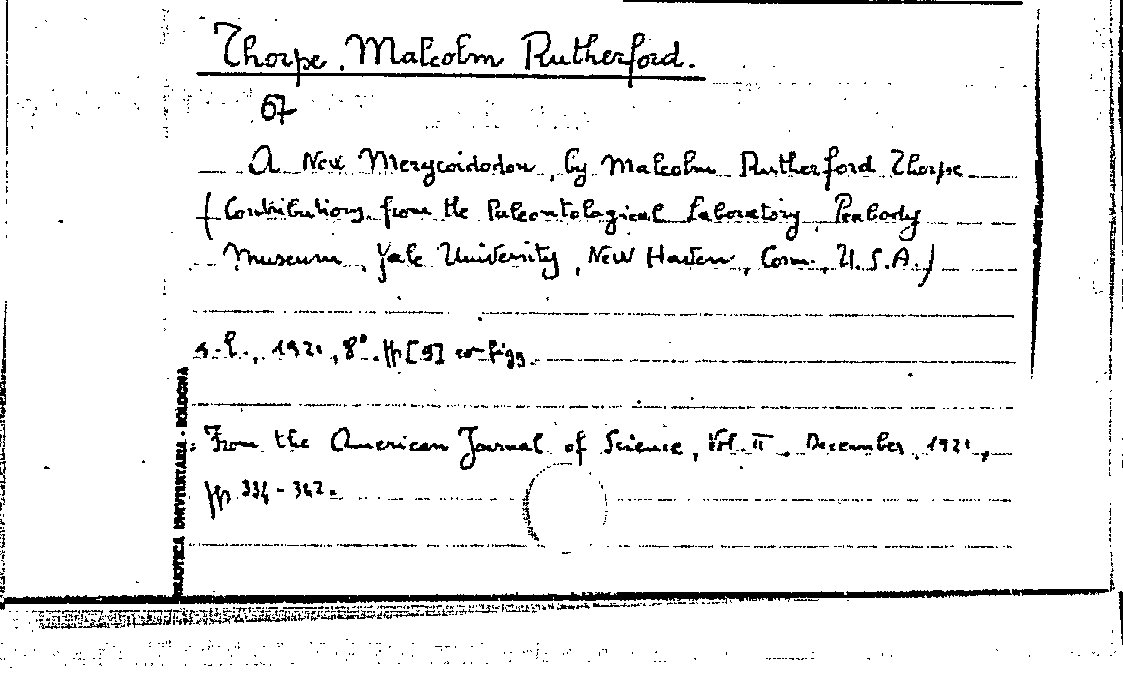 Thorpe, Malcolm Rutherford.
67
A New Merycoidodon, by Malcolm Rutherford Thorpe
(Contributions from the Paleontological Laboratory, Peabody
Museum, Yale University, New Haven, Conn., U.S.A.)
s.l., 1921, 8°. pp [9] con figg.
: From the American Journal of Science, Vol. II, December, 1921,
pp 334-342.
BIBLIOTECA UNIVERSITARIA - BOLOGNA